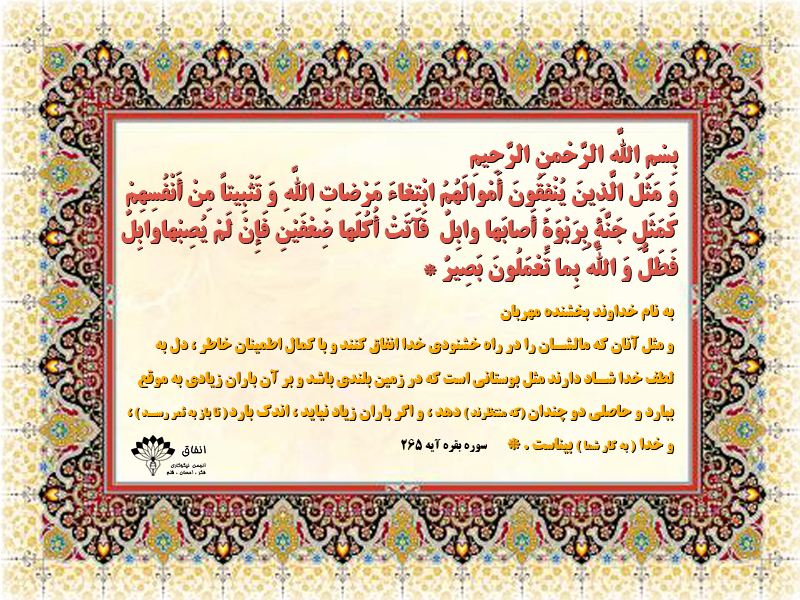 بِسْمِ اللَّهِ الرَّحْمنِ الرَّحِيمِ
وَ مَثَلُ الَّذِينَ يُنْفِقُونَ أَمْوالَهُمُ ابْتِغاءَ مَرْضاتِ اللَّهِ وَ تَثْبِيتاً مِنْ أَنْفُسِهِمْ
كَمَثَلِ جَنَّةٍ بِرَبْوَةٍ أَصابَها وابِلٌ فَآتَتْ أُكُلَها ضِعْفَيْنِ فَإِنْ لَمْ يُصِبْهاوابِلٌ
فَطَلٌّ وَ اللَّهُ بِما تَعْمَلُونَ بَصِيرٌ *
به نام خداوند بخشنده مهربان
و مثل آنان که مالشـــان را در راه خشنودی خدا انفاق کنند و با کمال اطمینان خاطر ، دل به
لطف خدا شــاد دارند مثل بوستانی است که در زمین بلندی باشد و بر آن باران زیادی به موقع
ببارد و حاصلی دو چندان (که منتظرند) دهد ، و اگر باران زیاد نیاید ، اندک بارد (تا باز به ثمر رســد) ،
و خدا ( به کار شما ) بیناست . * سوره بقره آیه ۲۶۵
انفاق
انجمن نیکوکاری
فکر ، احسان ، قلم